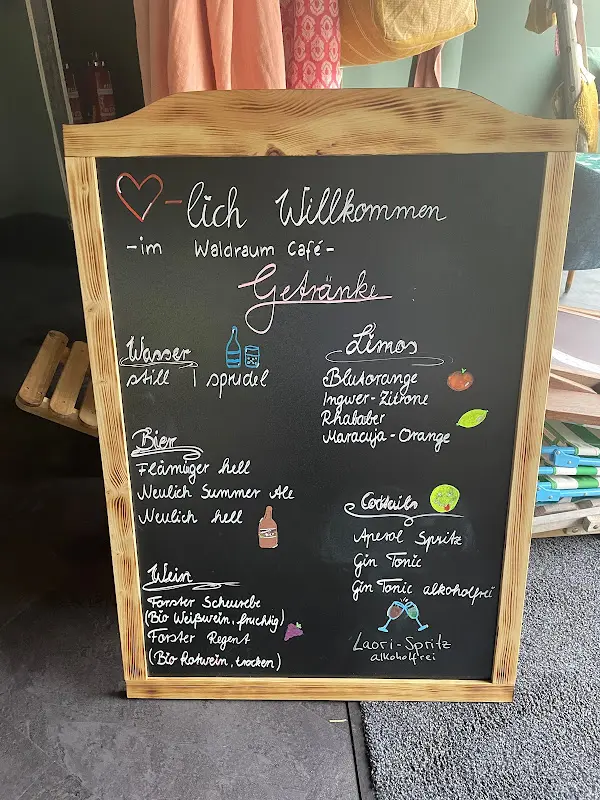 -lich Willkommen
-im Waldraum Café-
Getränke
Wasser
still | sprudel
Bier
Flämiger hell
Neulich Summer Ale
Neulich hell
Wein
Forster Scheurebe
(Bio Weißwein, fruchtig)
Forster Regent
(Bio Rotwein, trocken)
Limos
Blutorange
Ingwer-Zitrone
Rhababer
Maracuja-Orange
Cocktails
Aperol Spritz
Gin Tonic
Gin Tonic alkoholfrei
Laori-Spritz
alkoholfrei